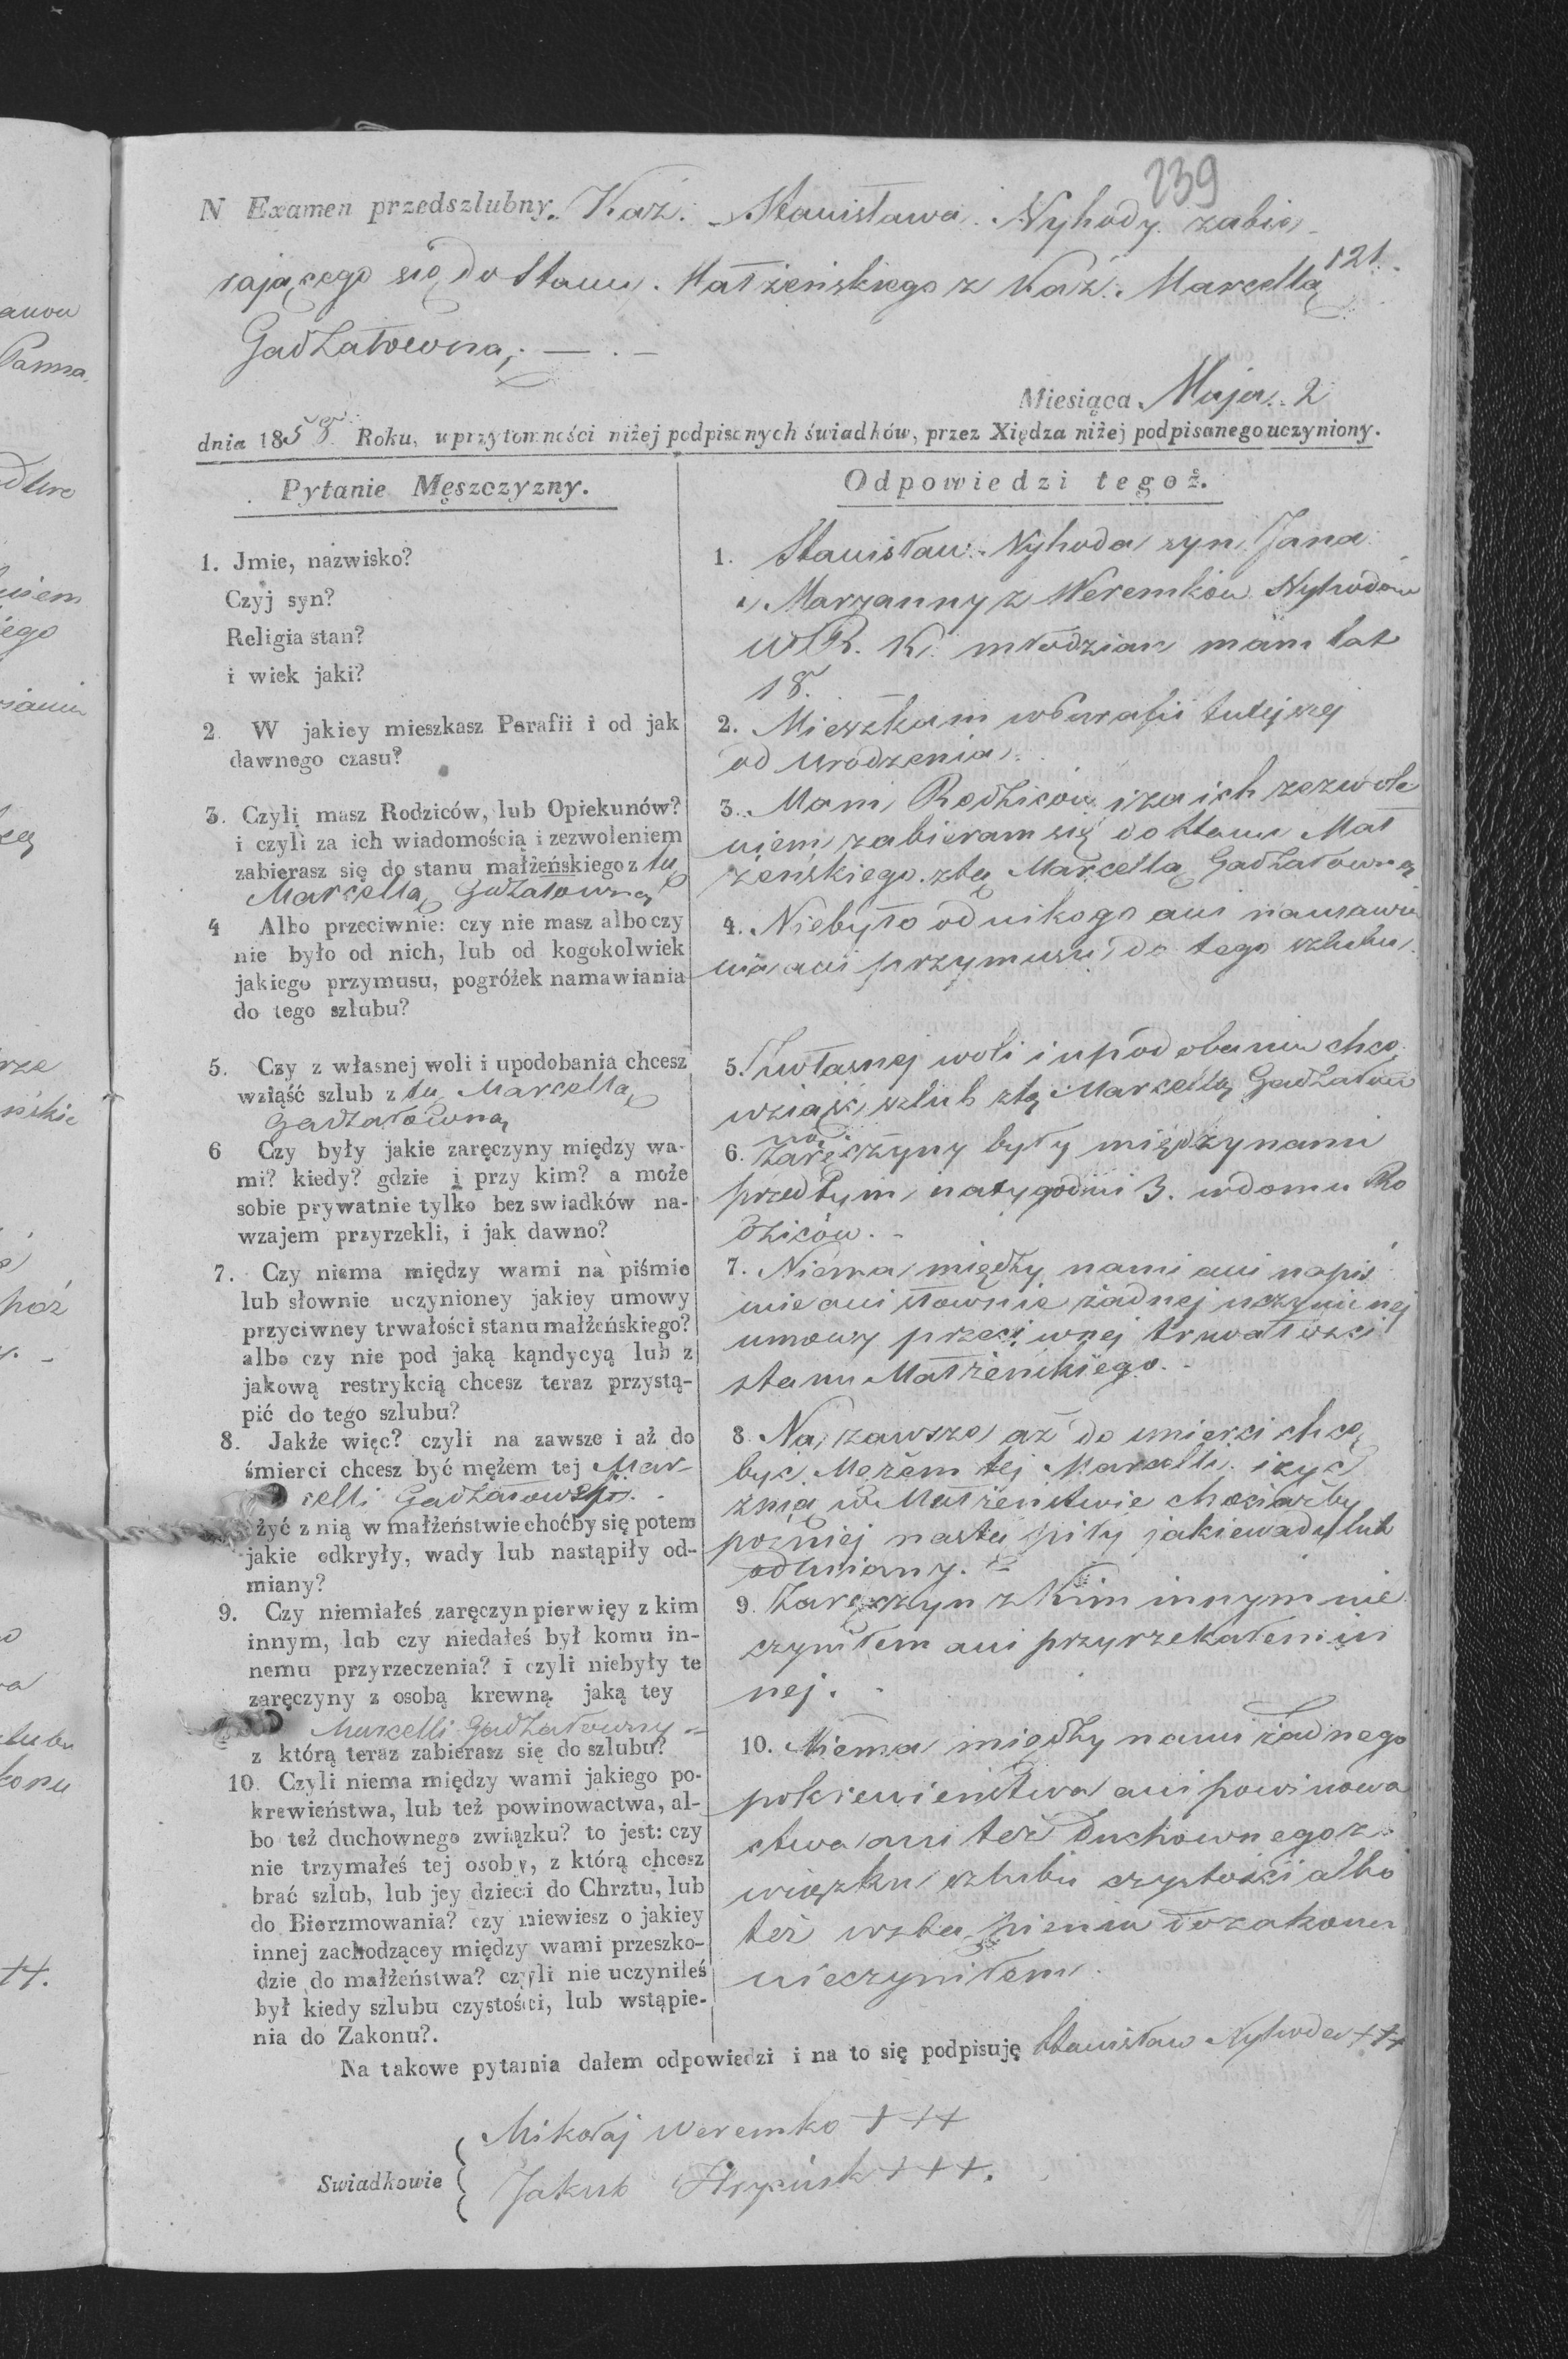 239
N Examen przedszlubny. Kaź. Stanisława Nyhody zabie-
rającego się do Stanu Małżeńskiego z Kaź. Marcellą 121.
Gadzałowną. — . —
Miesiąca Maja 2
dnia 1858 Roku, w przytomności niżej podpisanych świadków, przez Xiędza niżej podpisanego uczyniony.
Pytanie Męszczyzny.
1. Jmie, nazwisko?
Czyj syn?
Religia stan?
i wiek jaki?
2. W jakiey mieszkasz Parafii i od jak
dawnego czasu?
3. Czyli masz Rodziców, lub Opiekunów?
i czyli za ich wiadomością i zezwoleniem
zabierasz się do stanu małżeńskiego z tą
Marcellą Gadzałowną
4 Albo przeciwnie: czy nie masz albo czy
nie było od nich, lub od kogokolwiek
jakiego przymusu, pogróżek namawiania
do tego szlubu?
5. Czy z własnej woli i upodobania chcesz
wziąść szlub z tą Marcellą
Gadzałowną
6 Czy były jakie zaręczyny między wa-
mi? kiedy? gdzie i przy kim? a może
sobie prywatnie tylko bez swiadków na-
wzajem przyrzekli, i jak dawno?
7. Czy niema między wami na piśmie
lub słownie uczynioney jakiey umowy
przyciwney trwałości stanu małżeńskiego?
albo czy nie pod jaką kąndycyą lub z
jakową restrykcią chcesz teraz przystą-
pić do tego szlubu?
8. Jakże więc? czyli na zawsze i aż do
śmierci chcesz być mężem tej Mar-
celli
żyć z nią w małżeństwie choćby się potem
jakie odkryły, wady lub nastąpiły od-
miany?
9. Czy niemiałeś zaręczyn pierwięy z kim
innym, lub czy niedałeś był komu in-
nemu przyrzeczenia? i czyli niebyły te
zaręczyny z osobą krewną jaką tey
Marcelli Gadzałowny
z którą teraz zabierasz się do szlubu?
10. Czyli niema między wami jakiego po-
krewieństwa, lub też powinowactwa, al-
bo też duchownego związku? to jest: czy
nie trzymałeś tej osoby, z którą chcesz
brać szlub, lub jey dzieci do Chrztu, lub
do Bierzmowania? czy niewiesz o jakiey
innej zachodzącey między wami przeszko-
dzie do małżeństwa? czyli nie uczyniłeś
był kiedy szlubu czystości, lub wstąpie-
nia do Zakonu?.
Odpowiedzi tegoż.
1. Stanisław Nyhoda syn Jana
i Marzanny z Weremków Nyhodów
w R. K. młodzian mam lat
18.
2. Mieszkam w Parafii tutejszej
od urodzenia.
3. Mam Rodziców i za ich zezwole
niem zabieram się do Stanu Mał
żeńskiego z tą Marcellą Gadzałowną
4. Niebyło od nikogo ani namawia
nia ani przymusu do tego szlubu.
5. Z własnej woli i upodobania chcę
wziąść szlub z tą Marcellą Gadzałow
ną.
6. Zaręczyny były między nami
przed tym na tygodni 3. w domu Ro
dziców. -
7. Niema między nami ani na piś
mie ani słownie żadnej uczynionej
umowy przeciwnej trwałości
stanu Małżeńskiego. -
8 Na zawsze aż do smierci chcę
być Mężem tej Marcelli i żyć
z nią w Małżeństwie chociażby
poźniej nastąpiły jakie wady lub
odmiany. -
9. Zaręczyn z kim innym nie
czyniłem ani przyrzekałem in
nej.
10. Niema między nami żadnego
pokrewieństwa ani powinowa
ctwa ani też Duchownego z
wiązku szlubu czystości albo
też wstąpienia do zakonu
nieczyniłem.
Na takowe pytania dałem odpowiedzi i na to się podpisuję Stanisław Nyhoda +++
Swiadkowie
Mikołaj Weremko +++
Jakub +++.